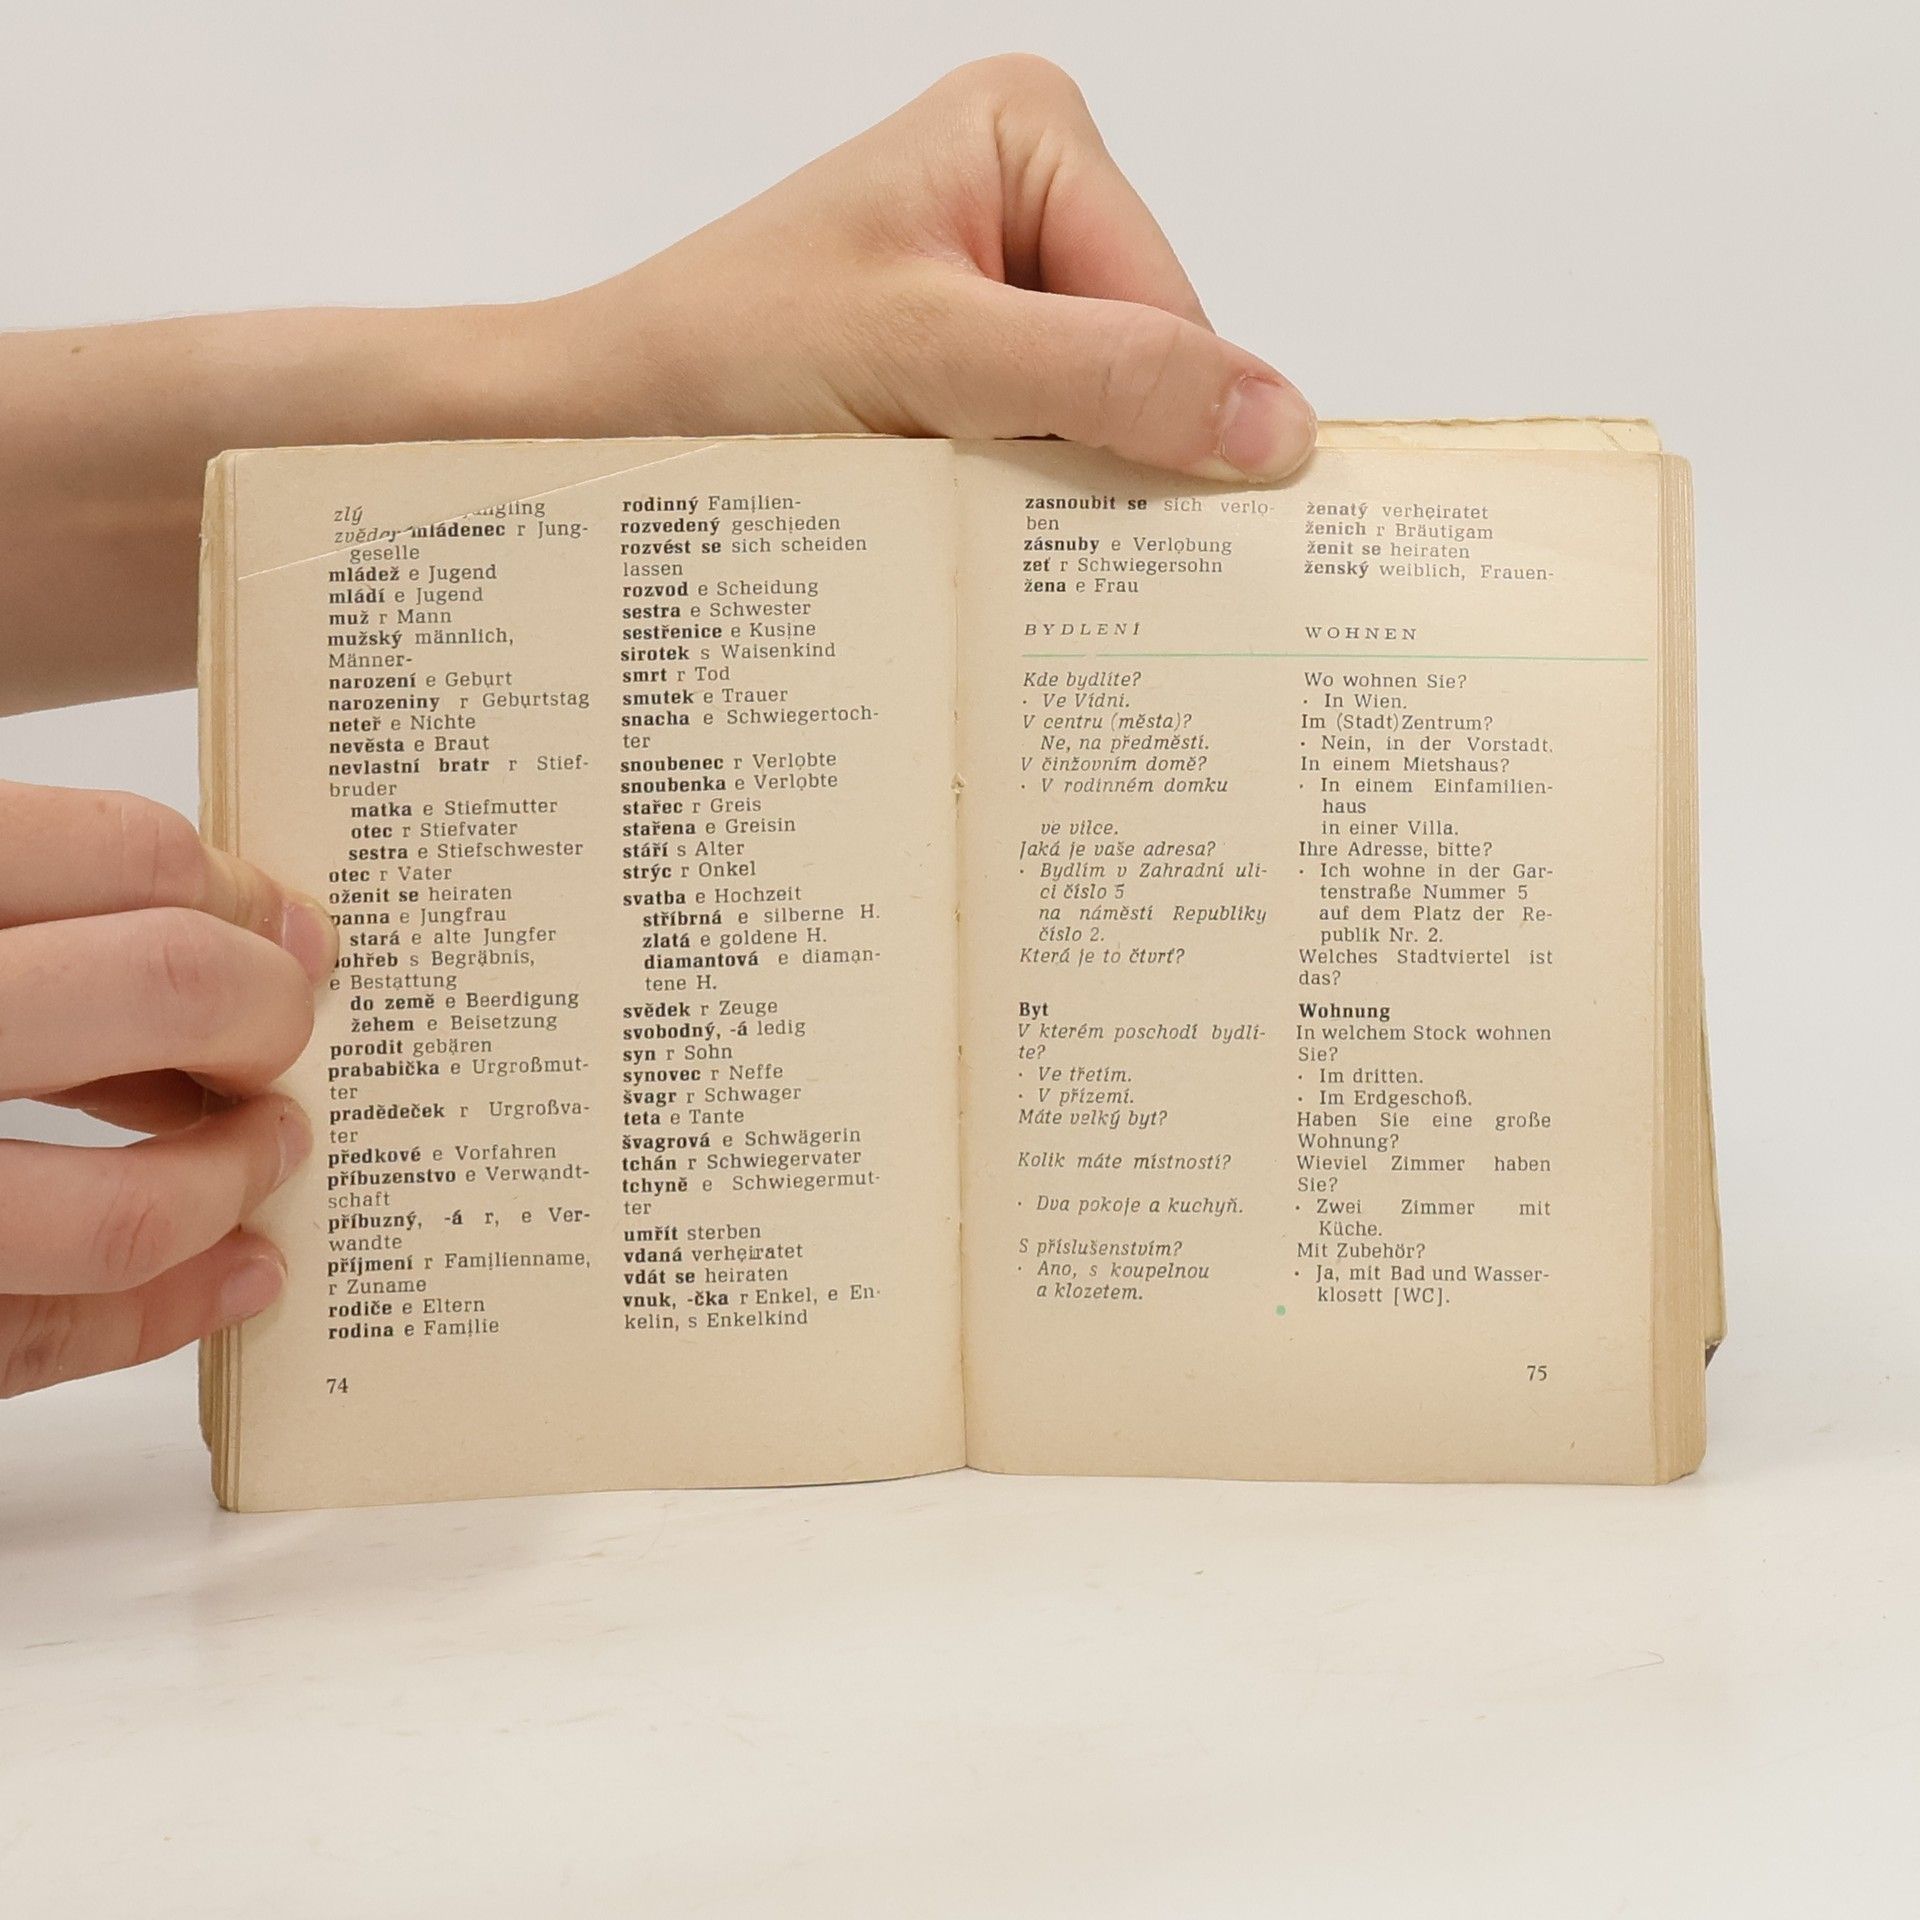 zlý
zvědav
mládenec r Jung-
geselle
mládež e Jugend
mládí e Jugend
muž r Mann
mužský männlich,
Männer-
narození e Geburt
narozeniny r Geburtstag
neteř e Nichte
nevěsta e Braut
nevlastní bratr r Stief-
bruder
matka e Stiefmutter
otec r Stiefvater
sestra e Stiefschwester
otec r Vater
oženit se heiraten
panna e Jungfrau
stará e alte Jungfer
pohřeb s Begräbnis,
e Bestattung
do země e Beerdigung
žehem e Beisetzung
porodit gebären
prababička e Urgroßmut-
ter
pradědeček r Urgroßva-
ter
předkové e Vorfahren
příbuzenstvo e Verwandt-
schaft
příbuzný, -á r, e Ver-
wandte
příjmení r Familienname,
r Zuname
rodiče e Eltern
rodina e Familie
74
rodinný Familien-
rozvedený geschieden
rozvést se sich scheiden
lassen
rozvod e Scheidung
sestra e Schwester
sestřenice e Kusine
sirotek s Waisenkind
smrt r Tod
smutek e Trauer
snacha e Schwiegertoch-
ter
snoubenec r Verlobte
snoubenka e Verlobte
stařec r Greis
stařena e Greisin
stáří s Alter
strýc r Onkel
svatba e Hochzeit
stříbrná e silberne H.
zlatá e goldene H.
diamantová e diaman-
tene H.
svědek r Zeuge
svobodný, -á ledig
syn r Sohn
synovec r Neffe
švagr r Schwager
teta e Tante
švagrová e Schwägerin
tchán r Schwiegervater
tchyně e Schwiegermut-
ter
umřít sterben
vdaná verheiratet
vdát se heiraten
vnuk, -čka r Enkel, e En-
kelin, s Enkelkind
zasnoubit se sich verlo-
ben
zásnuby e Verlobung
zeť r Schwiegersohn
žena e Frau
ženatý verheiratet
ženich r Bräutigam
ženit se heiraten
ženský weiblich, Frauen-
BYDLENÍ
Kde bydlíte?
· Ve Vídni.
V centru (města)?
Ne, na předměstí.
V činžovním domě?
· V rodinném domku
ve vilce.
Jaká je vaše adresa?
· Bydlím v Zahradní uli-
ci číslo 5
na náměstí Republiky
číslo 2.
Která je to čtvrť?
Byt
V kterém poschodí bydlí-
te?
· Ve třetím.
· V přízemí.
Máte velký byt?
Kolik máte místností?
· Dva pokoje a kuchyň.
S příslušenstvím?
· Ano, s koupelnou
a klozetem.
WOHNEN
Wo wohnen Sie?
· In Wien.
Im (Stadt)Zentrum?
· Nein, in der Vorstadt.
In einem Mietshaus?
· In einem Einfamilien-
haus
in einer Villa.
Ihre Adresse, bitte?
· Ich wohne in der Gar-
tenstraße Nummer 5
auf dem Platz der Re-
publik Nr. 2.
Welches Stadtviertel ist
das?
Wohnung
In welchem Stock wohnen
Sie?
· Im dritten.
· Im Erdgeschoß.
Haben Sie eine große
Wohnung?
Wieviel Zimmer haben
Sie?
· Zwei Zimmer mit
Küche.
Mit Zubehör?
· Ja, mit Bad und Wasser-
klosett [WC].
75